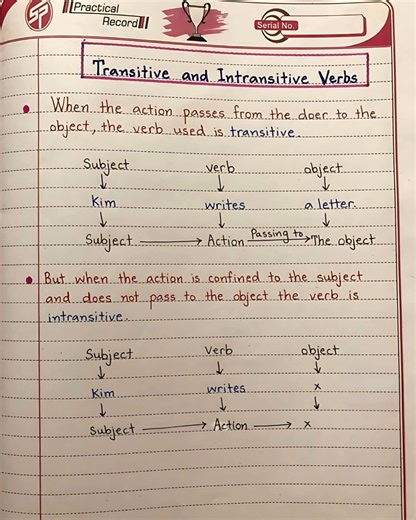 Practical
Record
Serial No.
Transitive and Intransitive Verbs
When the action passes from the doer to the
object, the verb used is transitive.
Subject verb object
↓ ↓ ↓
Kim writes a letter.
↓ ↓ ↓
Subject → Action Passing to → The object
But when the action is confined to the subject
and does not pass to the object the verb is
intransitive.
Subject Verb object
↓ ↓ ↓
Kim writes x
↓ ↓ ↓
Subject → Action → x